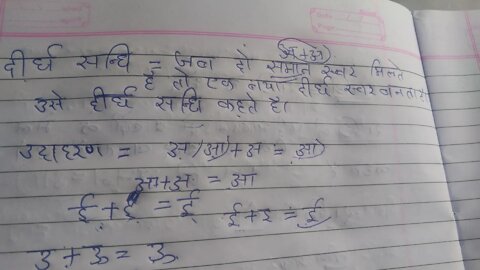 (अ+अ)
दीर्घ सन्धि = जब दो समान स्वर मिलते
है तो एक नया दीर्घ स्वर बनता है
उसे दीर्घ सन्धि कहते है।
उदाहरण = अ/आ+अ = आ
आ+अ = आ
ई+ई = ई ई+इ = ई
उ+ऊ = ऊ